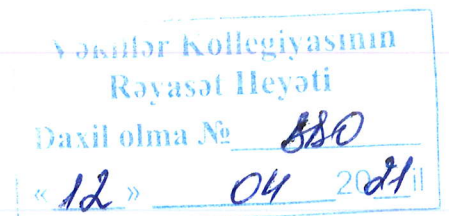 Vəkillər Kollegiyasının
Rəyasət Heyəti
Daxil olma № 880
« 12 » 04 2021 il